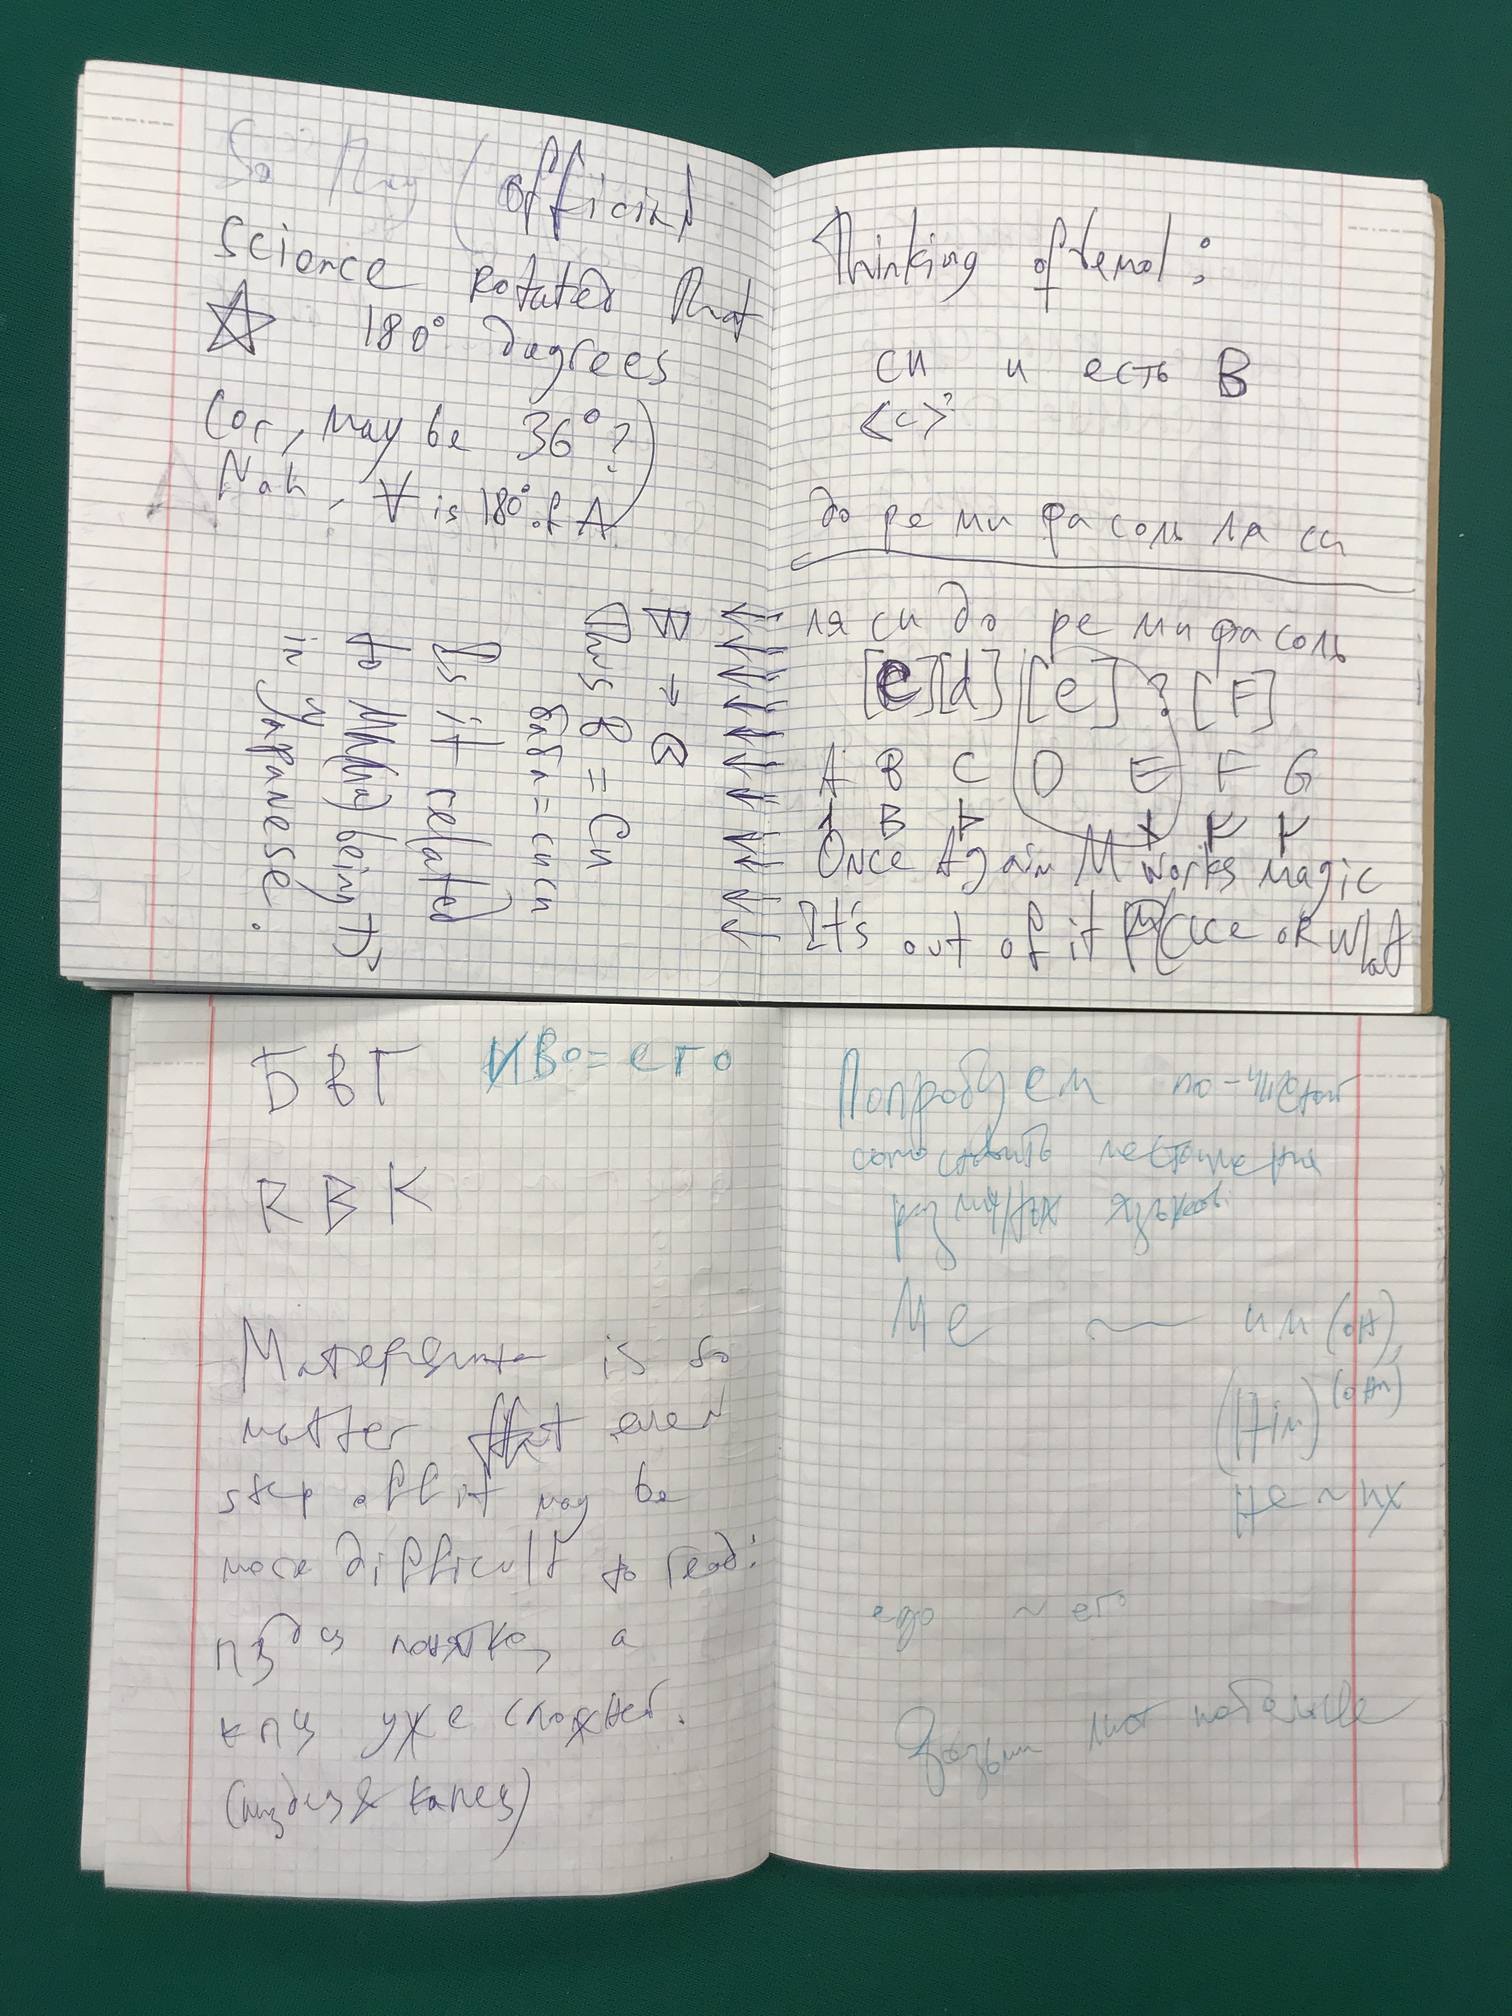 So They (official
Science rotated that
☆ 180° degrees
(or, may be 36°?
Nah, ∀ is 180° of A)
Thus B = Си
ВлВл = сиси
Is it related
to being
in Japanese.
Thinking of
си и есть B
<c>?
до ре ми фа соль ля си
ля си до ре ми фа соль
[e][d] [e] ? [F]
A B C D E F G
Once Again M works magic
It's out of it place or
БВГ ИВО = его
RBK
is so
matter that even
step off it may be
more difficult to read:
пздц понятно, а
кпц уже сложнет.
(пиздец & капец)
Попробуем по-чистой
сопоставить местоимения
различных языков.
Me ~ им (он),
(Him) (они)
не ~ их
ego ~ его
Возьми лист побольше